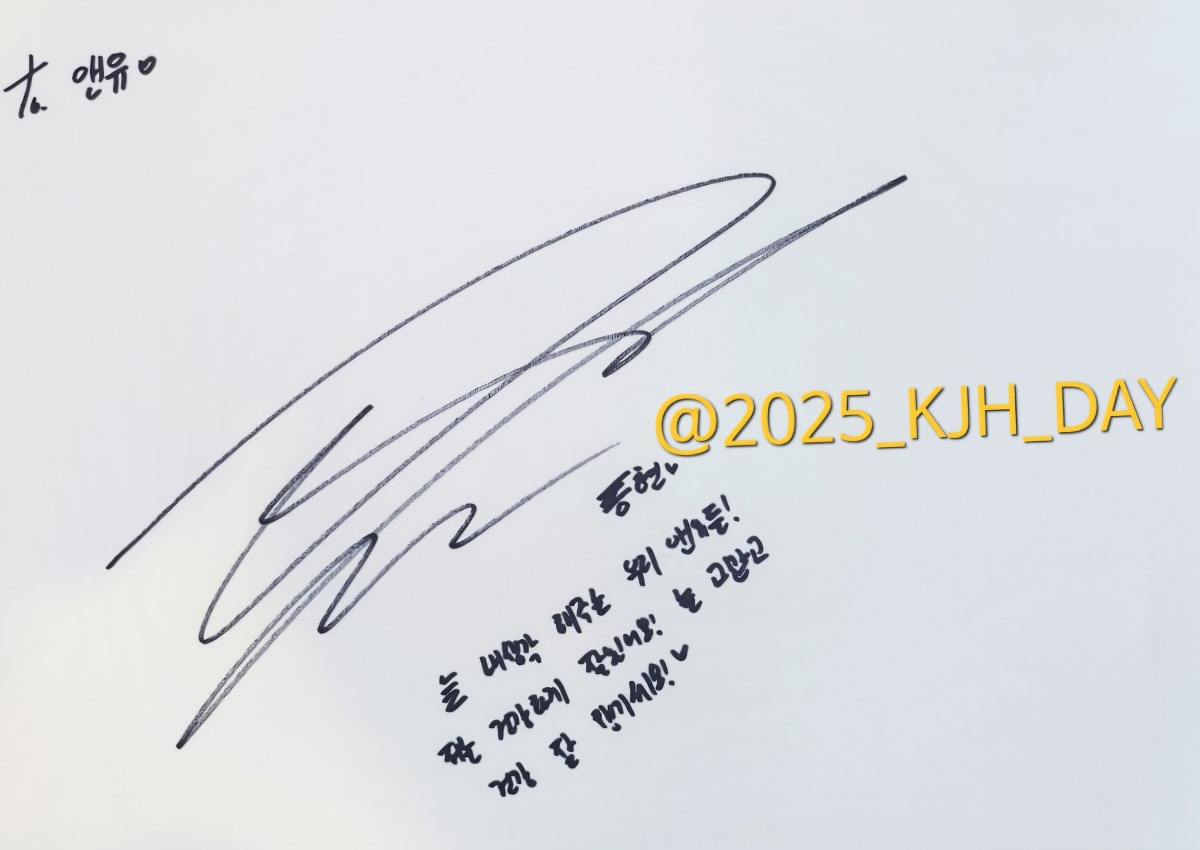 to. 앤유♡
@2025_KJH_DAY
종현♥
늘 내생각 해주는 우리 앤유들!
저는 건강하게 잘있어요! 늘 고맙고
건강 잘 챙기세요! ♥